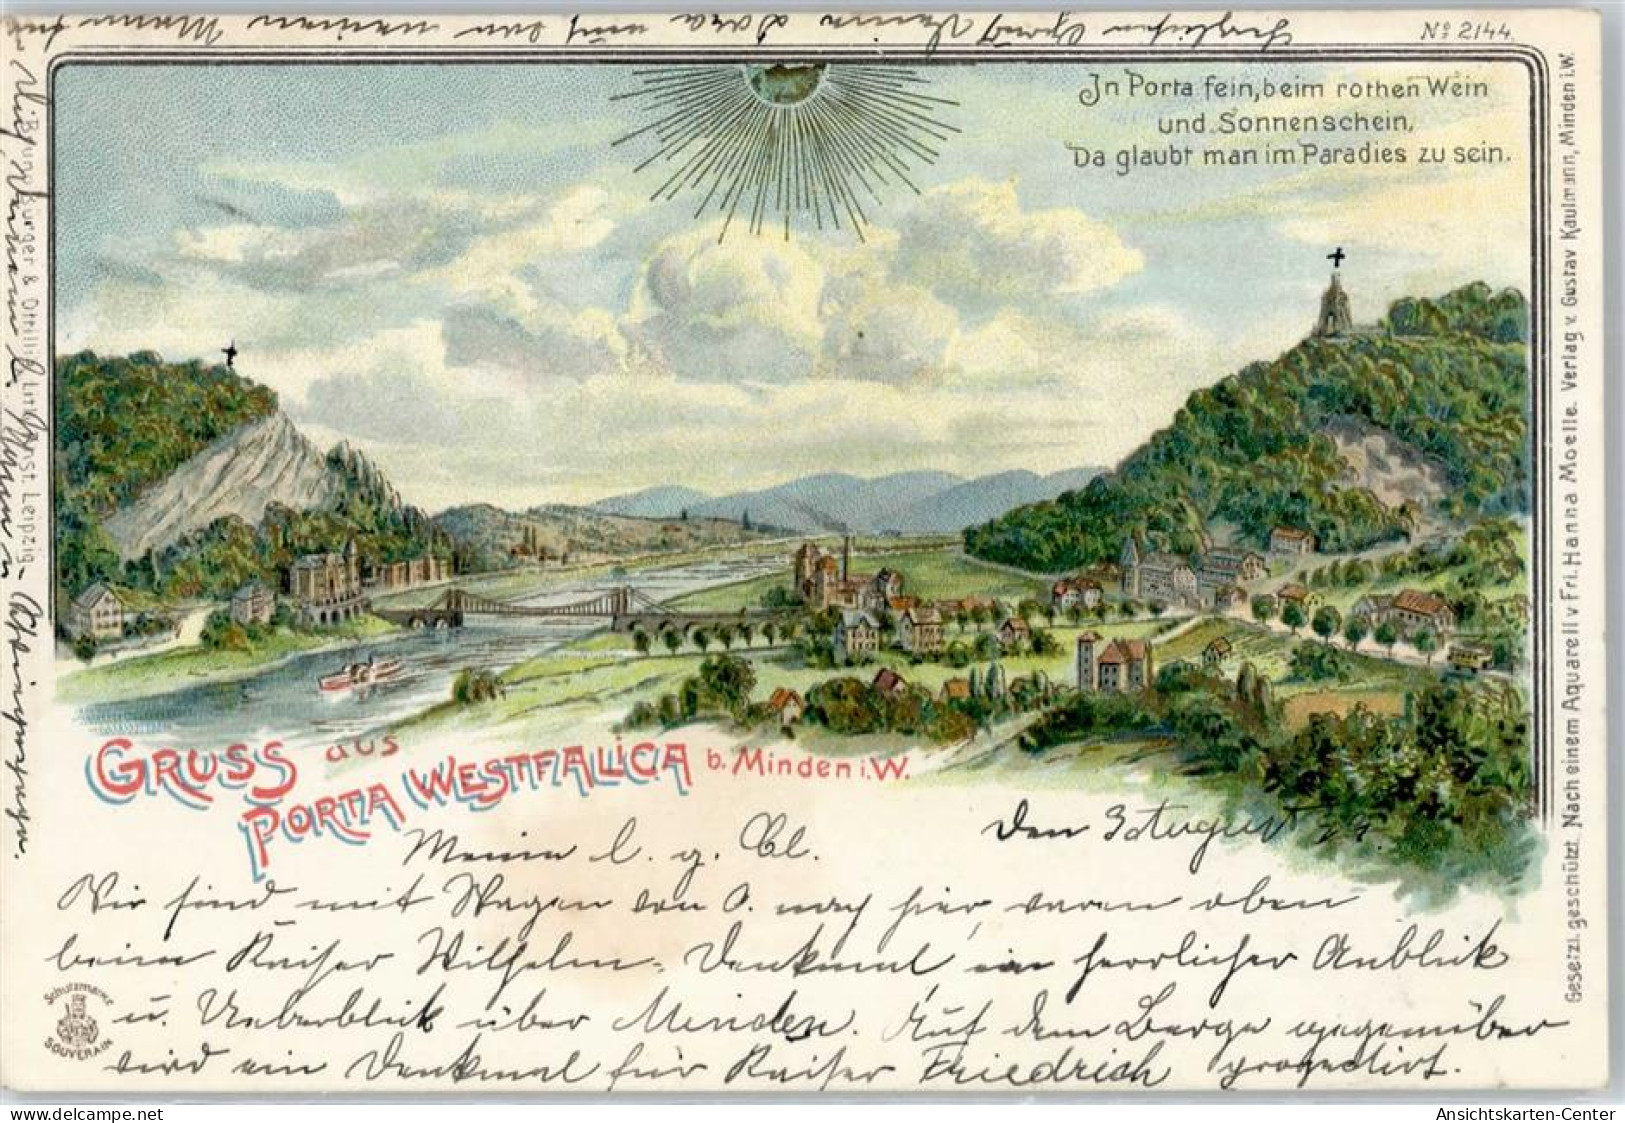 No 2144.
In Porta fein, beim rothen Wein
und Sonnenschein,
Da glaubt man im Paradies zu sein.
GRUSS aus
PORTA WESTFALICA b. Minden i. W.
Den 3 August
Meine l. g. Cl.
Wir sind mit Wagen von O. nach hier, waren oben
beim Kaiser Wilhelm-Denkmal, ein herrlicher Anblick
u. Ueberblick über Minden. Auf dem Berge gegenüber
wird ein Denkmal für Kaiser Friedrich projectirt.
Schutzmarke
SOUVERAIN
Gesetzl. geschützt. Nach einem Aquarell v. Frl. Hanna Moelle. Verlag v. Gustav Kaufmann, Minden i. W.
Leipzig
Dora und von meinem Mann
Ansichtskarten-Center